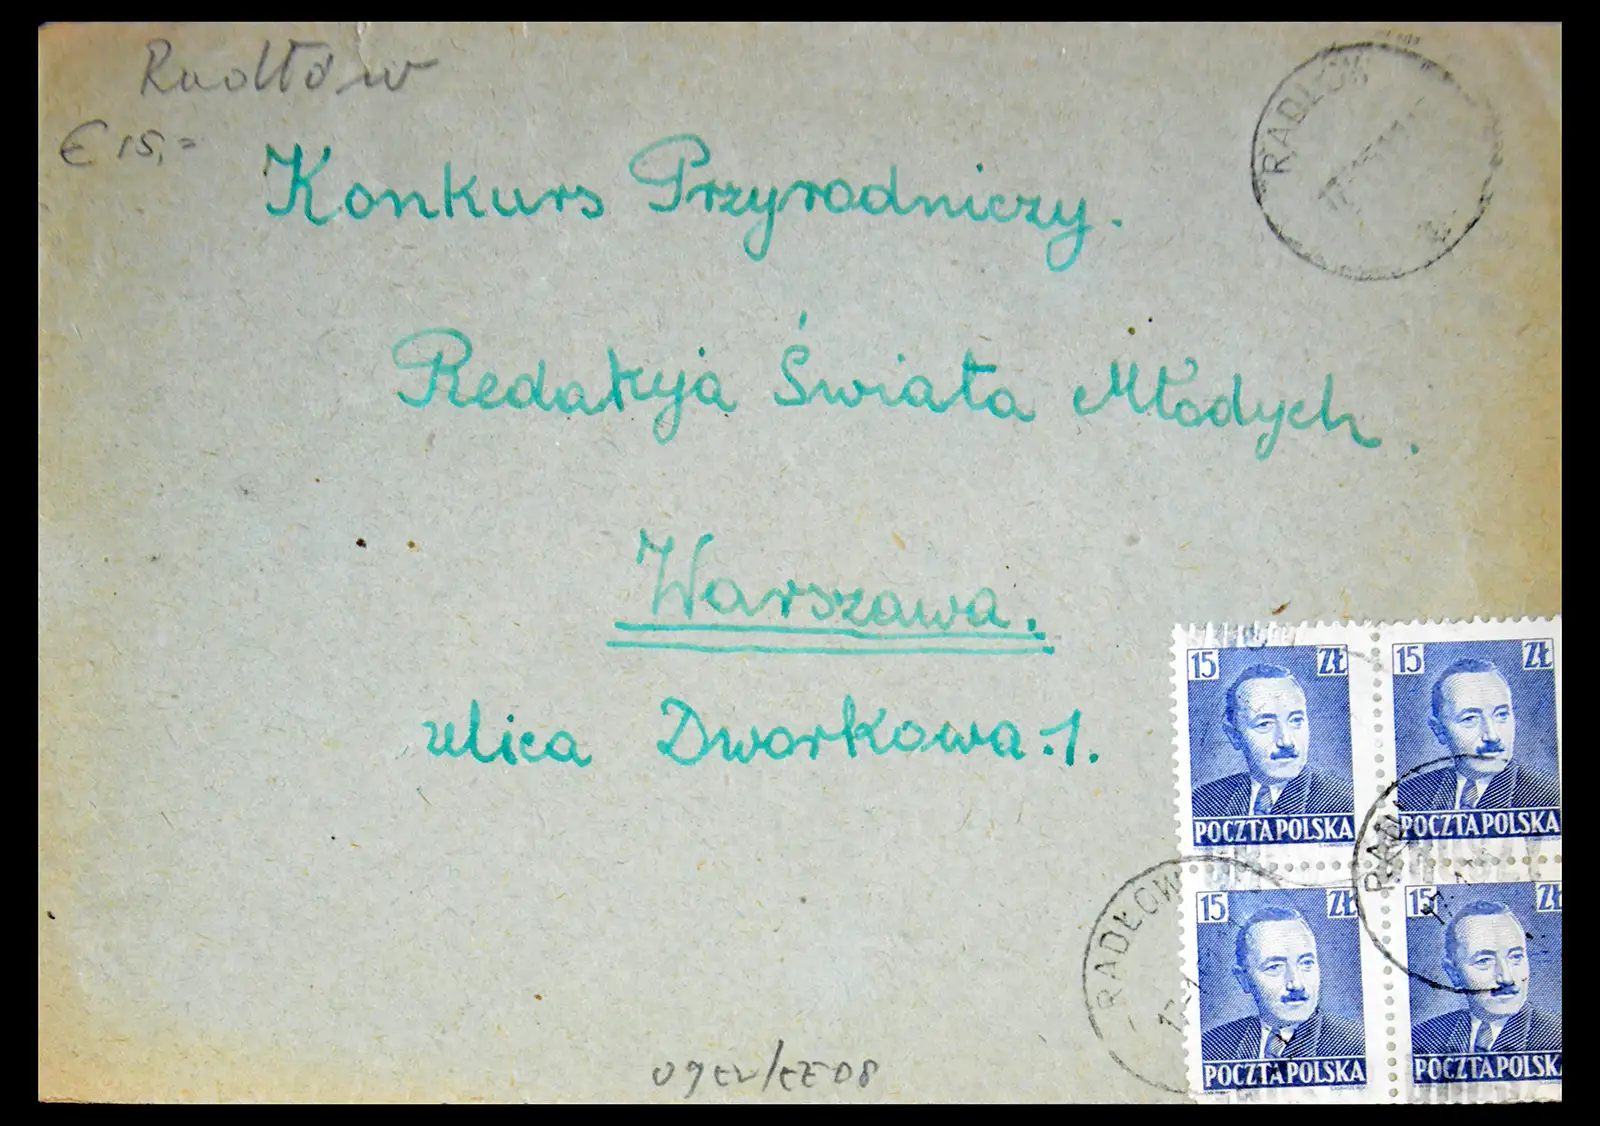 Radłów
€ 15,=
RADŁÓW
Konkurs Przyrodniczy.
Redakcja Świata Młodych.
Warszawa.
ulica Dworkowa 1.
15 ZŁ
POCZTA POLSKA
15 ZŁ
POCZTA POLSKA
15 ZŁ
POCZTA POLSKA
15 ZŁ
POCZTA POLSKA
RADŁÓW
RADŁ